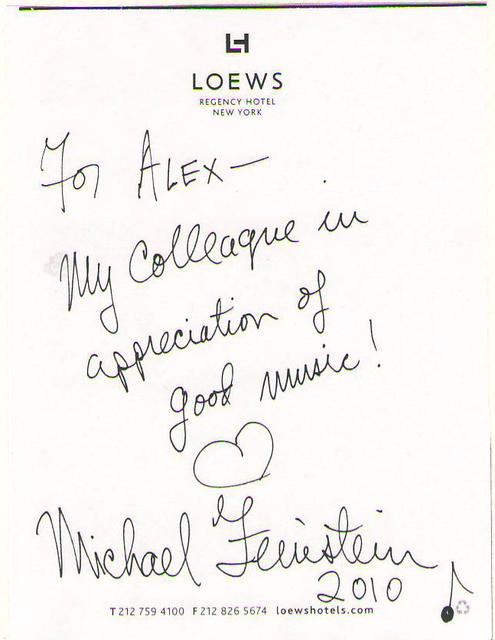 LH
LOEWS
REGENCY HOTEL
NEW YORK
For ALEX—
My Colleague in
appreciation of
good music!
Michael Feinstein
2010
T 212 759 4100 F 212 826 5674 loewshotels.com